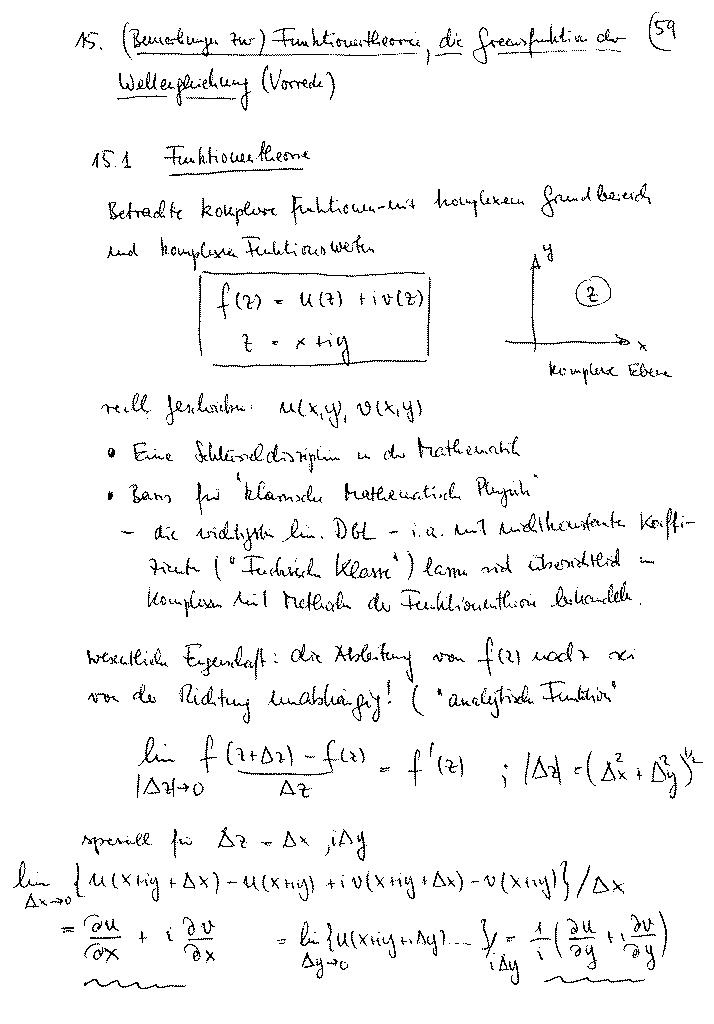 15. (Bemerkungen zur) Funktionentheorie, die Greensfunktion der (59
Wellengleichung (Vorrede)
15.1 Funktionentheorie
Betrachte komplexe Funktionen mit komplexem Grundbereich
und komplexen Funktionswerten
f(z) = u(z) + iv(z)
z = x + iy
y
z
x
komplexe Ebene
reell geschrieben: u(x,y), v(x,y)
• Eine Schlüsseldisziplin in der Mathematik
• Basis für "klassische Mathematische Physik"
– die wichtigsten lin. DGL – i.a. mit nichtkonstanten Koeffi-
zienten ("Fuchssche Klasse") lassen sich übersichtlich im
Komplexen mit Methoden der Funktionentheorie behandeln.
wesentliche Eigenschaft: die Ableitung von f(z) nach z sei
von der Richtung unabhängig! ("analytische Funktion"
lim |Δz|→0 f(z+Δz) – f(z) / Δz = f'(z) ; |Δz| = (Δx² + Δy²)^1/2
speziell für Δz = Δx, iΔy
lim Δx→0 {u(x+iy+Δx) – u(x+iy) + iv(x+iy+Δx) – v(x+iy)}/Δx
= ∂u/∂x + i ∂v/∂x = lim Δy→0 {u(x+iy+iΔy) ... }/iΔy = 1/i (∂u/∂y + i ∂v/∂y)